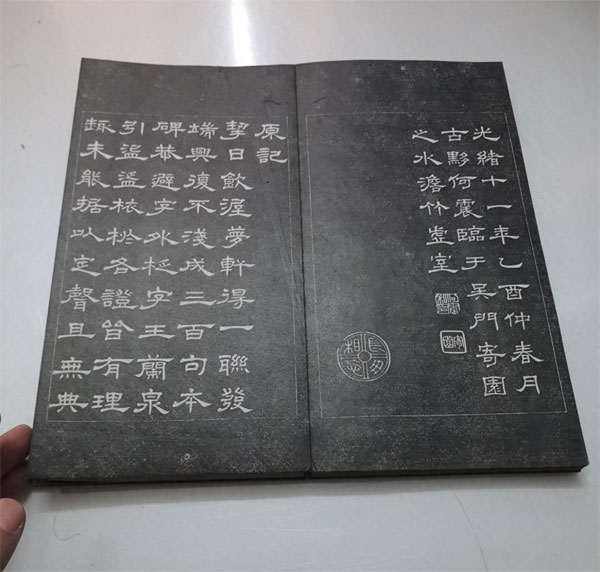 光緒十一年乙酉仲春月
古黟何震臨于吳門寄園
之水澹竹虛室
原記
日飲渥夢軒得一聯發
端興復不淺成三百句本
碑恭避字外字王蘭泉
引盜各證皆有理
未能據以定聲且無典